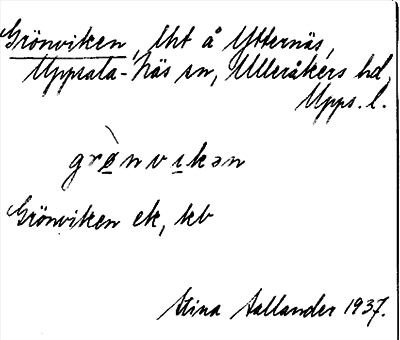 Grönviken, lht å Ytternäs,
Uppsala-Näs sn, Ulleråkers hd,
Upps. l.
grø̀nvıkən
Grönviken ek, kb
Stina Sallander 1937.